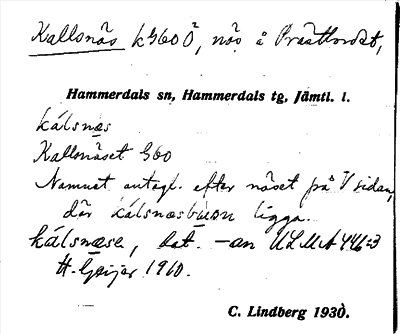 Kallsnäs kG60Ö, näs å Prästlandet,
Hammerdals sn, Hammerdals tg, Jämtl. l.
kálsnæs
Kallsnäset G60
Namnet antagl. efter näset på V sidan,
där kálsnæsbüan ligga.
kálsnæse, dat. -an ULMA 446:3
H. Geijer 1910.
C. Lindberg 1930.